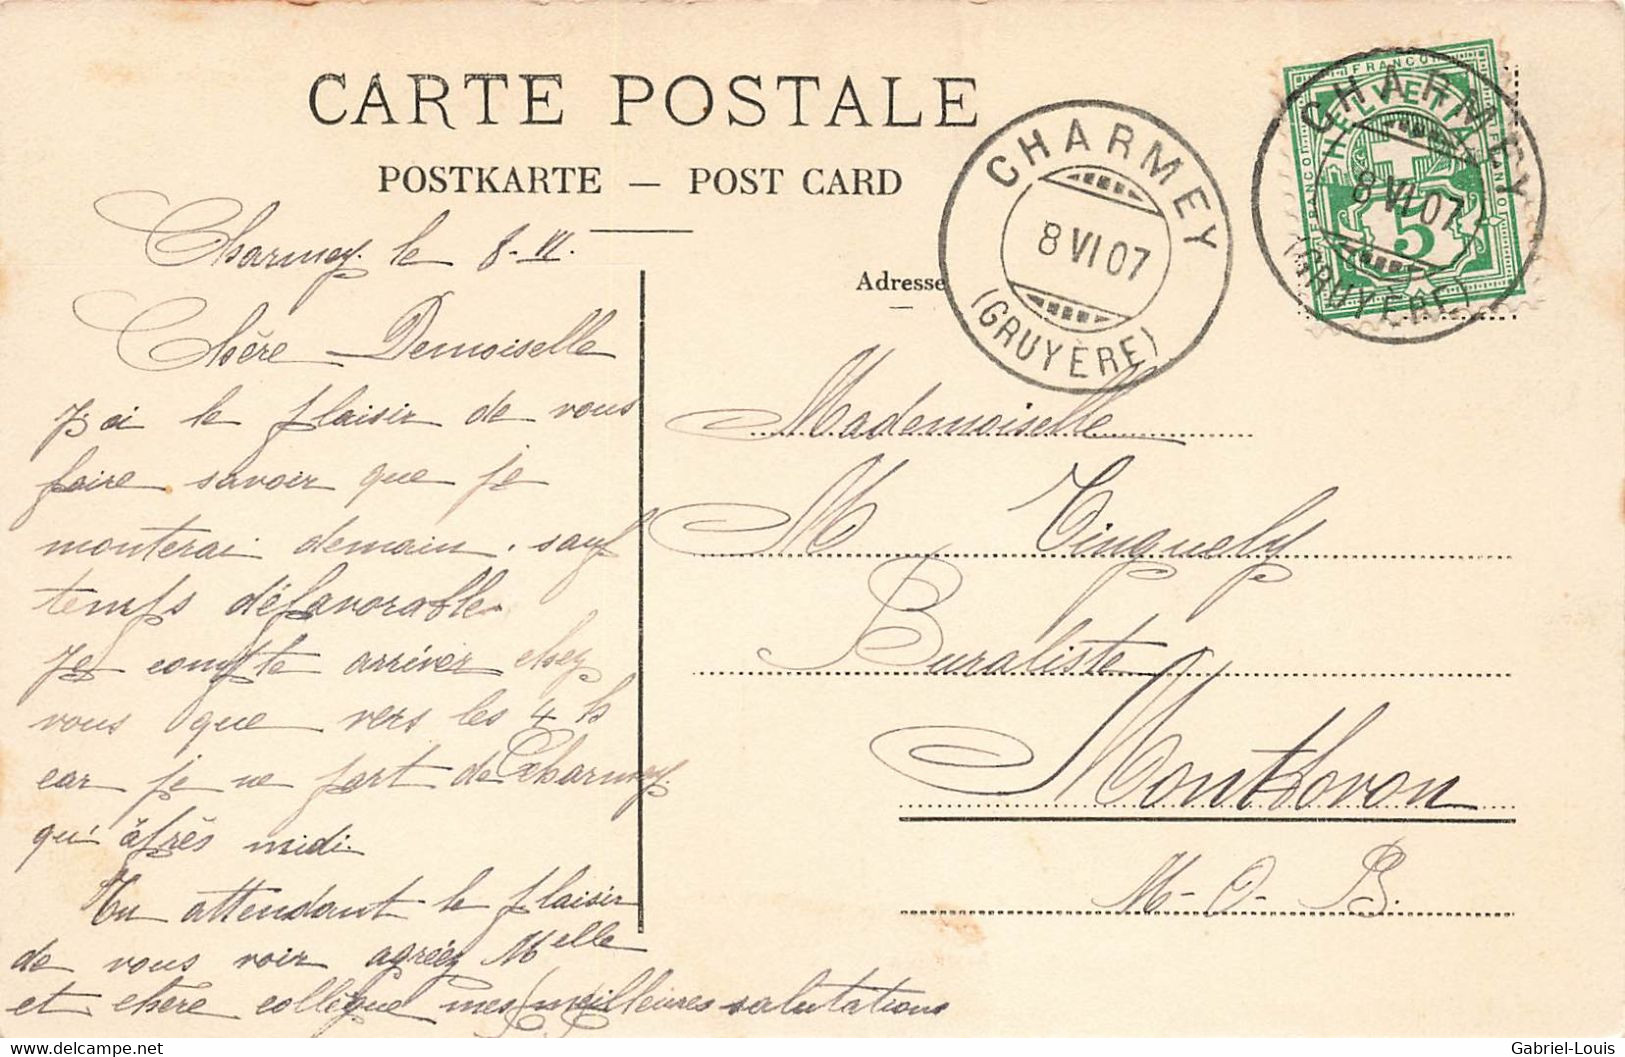 CARTE POSTALE
POSTKARTE — POST CARD
Charmey le 8-VI.
Chère Demoiselle
J'ai le plaisir de vous
faire savoir que je
monterai demain, sauf
temps défavorable.
Je compte arriver chez
vous que vers les 4 h
car je ne part de Charmey
qu'après midi.
En attendant le plaisir
de vous voir agréez Melle
et chère collègue mes meilleures salutations
Adresse
CHARMEY
8 VI 07
(GRUYÈRE)
CHARMEY
8 VI 07
(GRUYÈRE)
FRANCO
HELVETIA
FRANCO
FRANCO
5
Mademoiselle
M Tinguely
Buraliste
Montbovon
M-O-B.
Gabriel-Louis